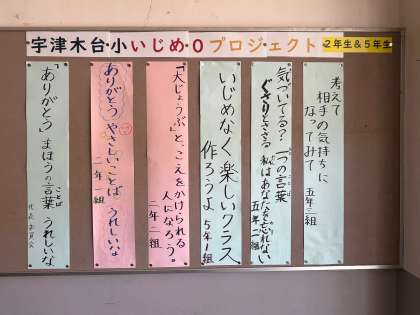 宇津木台小いじめ・0プロジェクト 2年生&5年生
考えて
相手の気持ちに
なってみて
五年三組
気づいてる？一つの言葉
ぐさりとささる 私はあなたを忘れない
五年二組
いじめなく楽しいクラス
作ろうよ 5年1組
「大じょうぶ」と、こえをかけられる
人になろう。
二年二組
ありがとう やさしいことば うれしいな
二年一組
「ありがとう」まほうの言葉 うれしいな
ことば
代表委員会